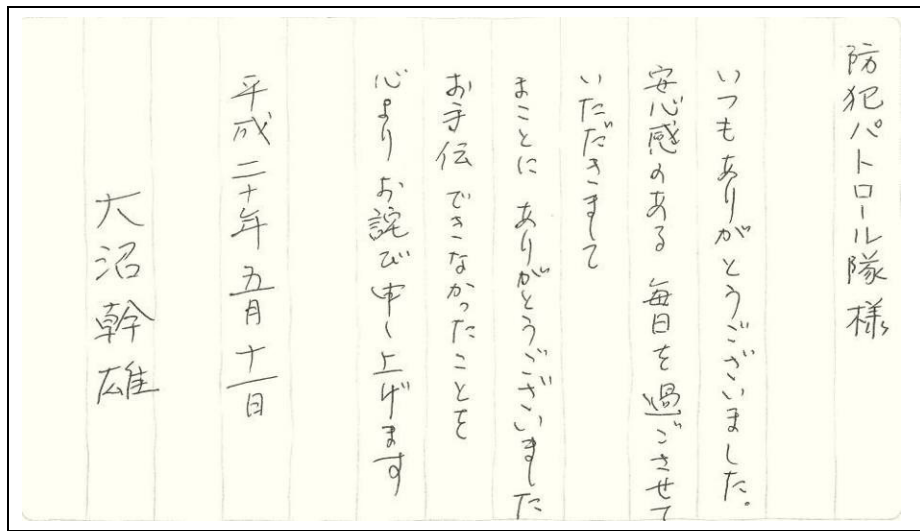 防犯パトロール隊様
いつもありがとうございました。
安心感のある 毎日を過ごさせて
いただきまして
まことに ありがとうございました
お手伝できなかったことを
心より お詫び申し上げます
平成二十年 五月十一日
大沼幹雄